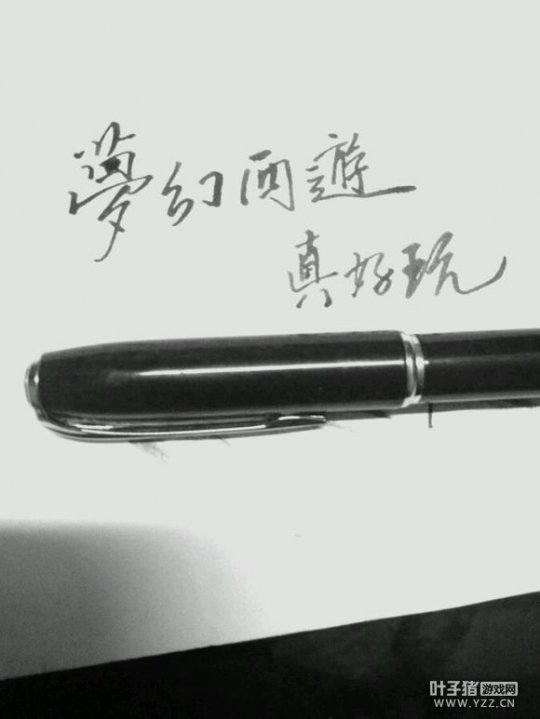 夢幻西遊
真好玩
叶子猪游戏网
WWW.YZZ.CN